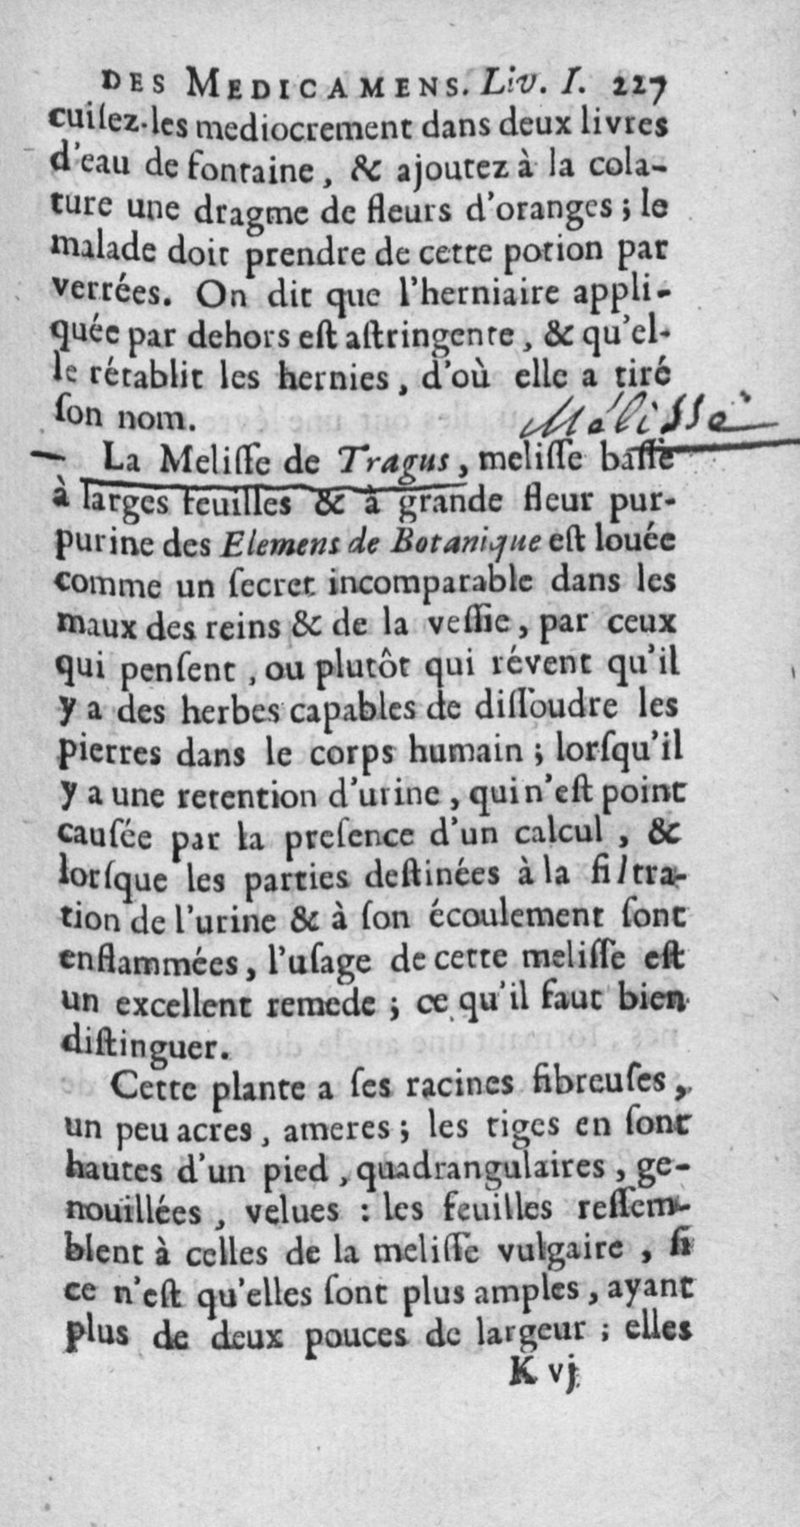 DES MEDICAMENS. Liv. I. 227
cuiſez-les mediocrement dans deux livres
d'eau de fontaine, & ajoutez à la cola-
ture une dragme de fleurs d'oranges ; le
malade doit prendre de cette potion par
verrées. On dit que l'herniaire appli-
quée par dehors eſt aſtringente, & qu'el-
le rétablit les hernies, d'où elle a tiré
ſon nom.
Mélisse
La Meliſſe de Tragus, meliſſe baſſe
à larges feuilles & à grande fleur pur-
purine des Elemens de Botanique eſt louée
comme un ſecret incomparable dans les
maux des reins & de la veſſie, par ceux
qui penſent, ou plutôt qui révent qu'il
y a des herbes capables de diſſoudre les
pierres dans le corps humain ; lorſqu'il
y a une retention d'urine, qui n'eſt point
cauſée par la preſence d'un calcul, &
lorſque les parties deſtinées à la filtra-
tion de l'urine & à ſon écoulement ſont
enflammées, l'uſage de cette meliſſe eſt
un excellent remede ; ce qu'il faut bien
diſtinguer.
Cette plante a ſes racines fibreuſes,
un peu acres, ameres ; les tiges en ſont
hautes d'un pied, quadrangulaires, ge-
nouillées, velues : les feuilles reſſem-
blent à celles de la meliſſe vulgaire, ſi
ce n'eſt qu'elles ſont plus amples, ayant
plus de deux pouces de largeur ; elles
K vj